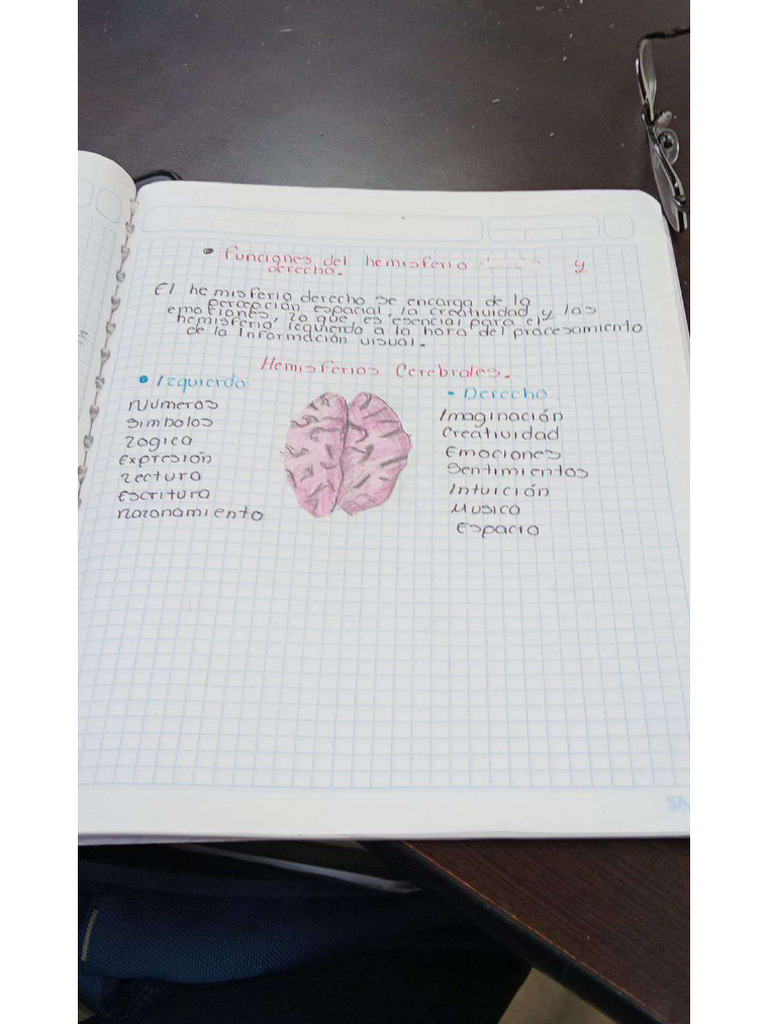 • Funciones del hemisferio y
derecho.
El hemisferio derecho se encarga de la
percepción espacial, la creatividad y las
emociones, lo que es esencial para el
hemisferio, Izquierdo a la hora del procesamiento
de la Información visual.
Hemisferios Cerebrales.
• Izquierdo
Números
Simbolos
Logica
Expresión
Lectura
Escritura
Razonamiento
• Derecho
Imaginación
Creatividad
Emociones
Sentimientos
Intuición
Musica
Espacio